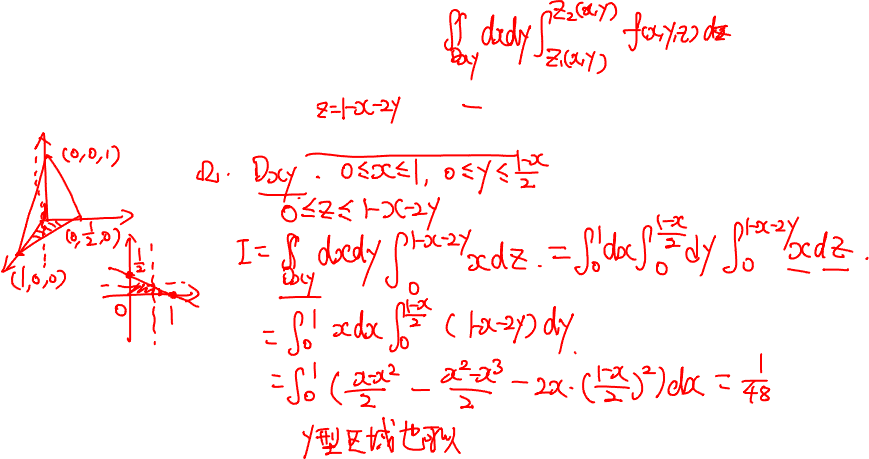 ∬_{Dxy} dxdy ∫_{z₁(x,y)}^{z₂(x,y)} f(x,y,z) dz
z=1-x-2y —
(0,0,1)
(0,1/2,0)
(1,0,0)
1/2
0 1
Ω. Dxy. 0≤x≤1, 0≤y≤(1-x)/2
0≤z≤1-x-2y
I=∬_{Dxy} dxdy ∫_0^{1-x-2y} xdz. =∫_0^1 dx∫_0^{(1-x)/2} dy ∫_0^{1-x-2y} xdz.
=∫_0^1 xdx ∫_0^{(1-x)/2} (1-x-2y) dy
=∫_0^1 ((x-x²)/2 - (x²-x³)/2 - 2x·((1-x)/2)²)dx = 1/48
Y型区域也可以